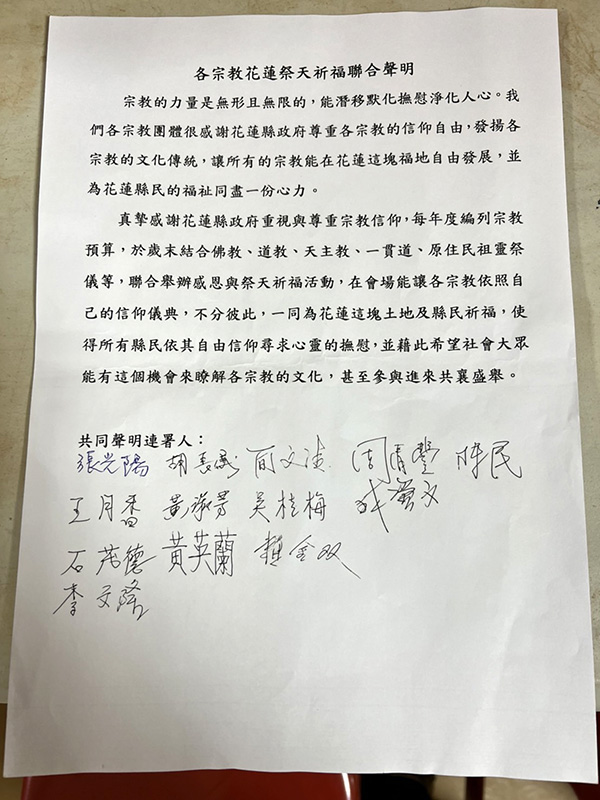 各宗教花蓮祭天祈福聯合聲明
宗教的力量是無形且無限的，能潛移默化撫慰淨化人心。我
們各宗教團體很感謝花蓮縣政府尊重各宗教的信仰自由，發揚各
宗教的文化傳統，讓所有的宗教能在花蓮這塊福地自由發展，並
為花蓮縣民的福祉同盡一份心力。
真摯感謝花蓮縣政府重視與尊重宗教信仰，每年度編列宗教
預算，於歲末結合佛教、道教、天主教、一貫道、原住民祖靈祭
儀等，聯合舉辦感恩與祭天祈福活動，在會場能讓各宗教依照自
己的信仰儀典，不分彼此，一同為花蓮這塊土地及縣民祈福，使
得所有縣民依其自由信仰尋求心靈的撫慰，並藉此希望社會大眾
能有這個機會來瞭解各宗教的文化，甚至參與進來共襄盛舉。
共同聲明連署人：
張光陽
王月香 吳桂梅
石茂德 黃英蘭
李文隆